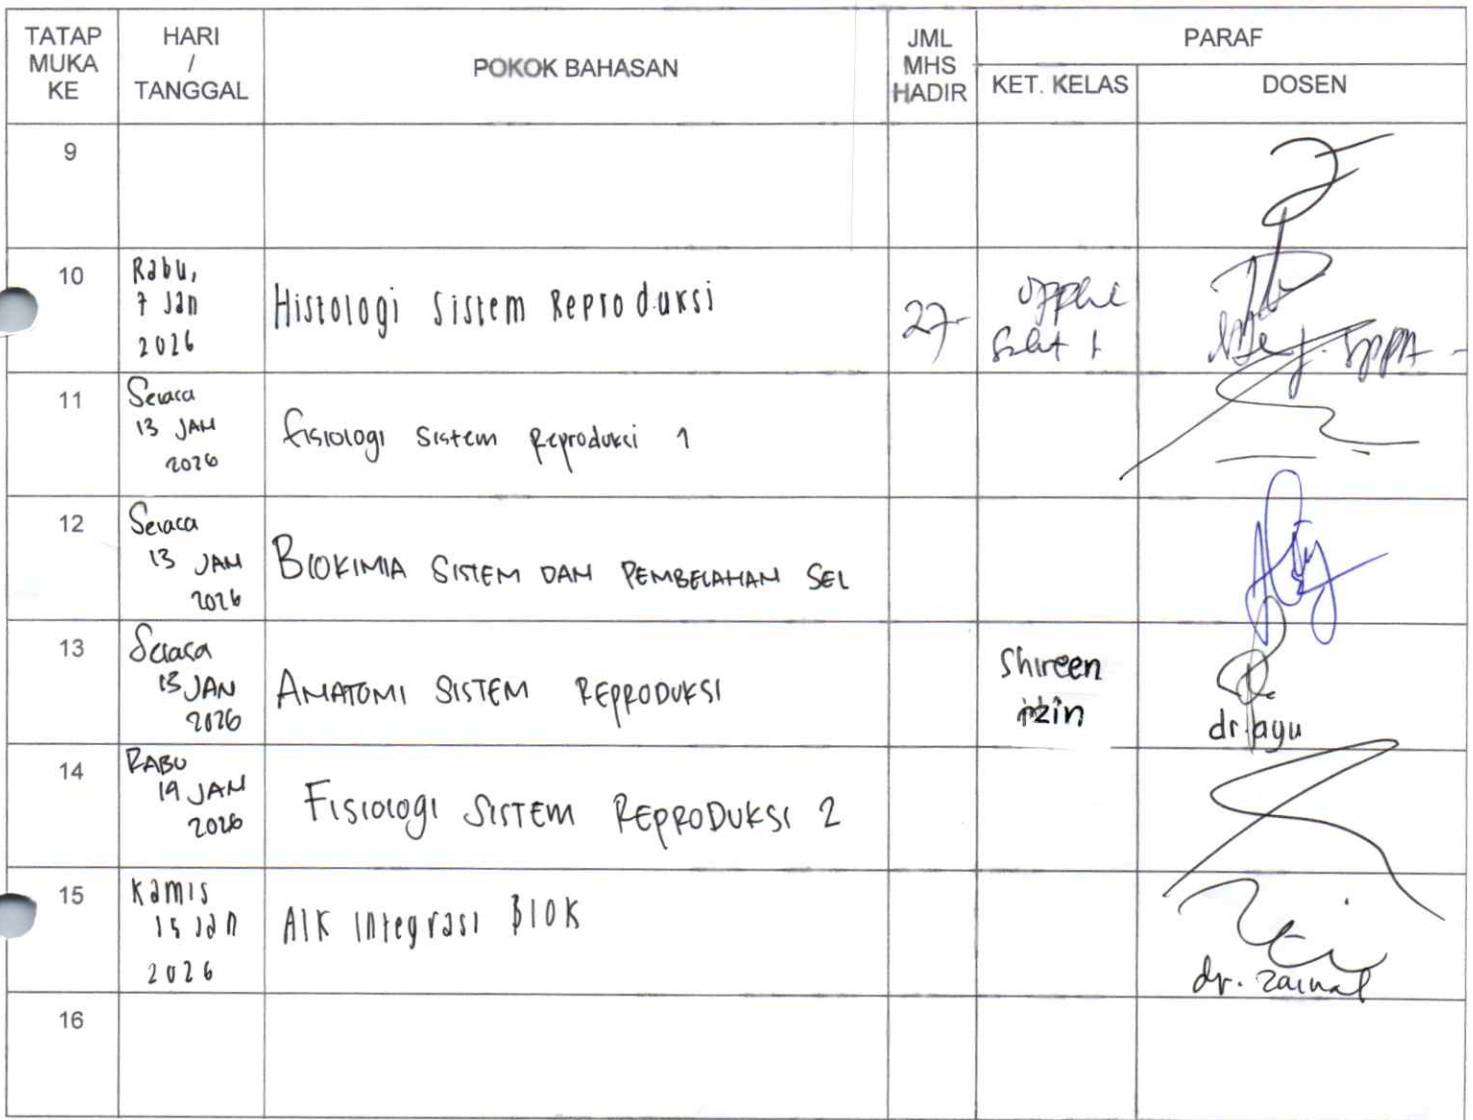 TATAP MUKA KE
HARI / TANGGAL
POKOK BAHASAN
JML MHS HADIR
PARAF
KET. KELAS
DOSEN
9
10
Rabu,
7 Jan
2026
Histologi Sistem Reproduksi
27
11
Selasa
13 JAN
2026
Fisiologi Sistem Reproduksi 1
12
Selasa
13 JAN
2026
BIOKIMIA SISTEM DAN PEMBELAHAN SEL
13
Selasa
13 JAN
2026
ANATOMI SISTEM REPRODUKSI
Shireen
izin
dr. ayu
14
RABU
14 JAN
2026
FISIOLOGI SISTEM REPRODUKSI 2
15
Kamis
15 Jan
2026
AIK Integrasi Blok
dr. Zainal
16